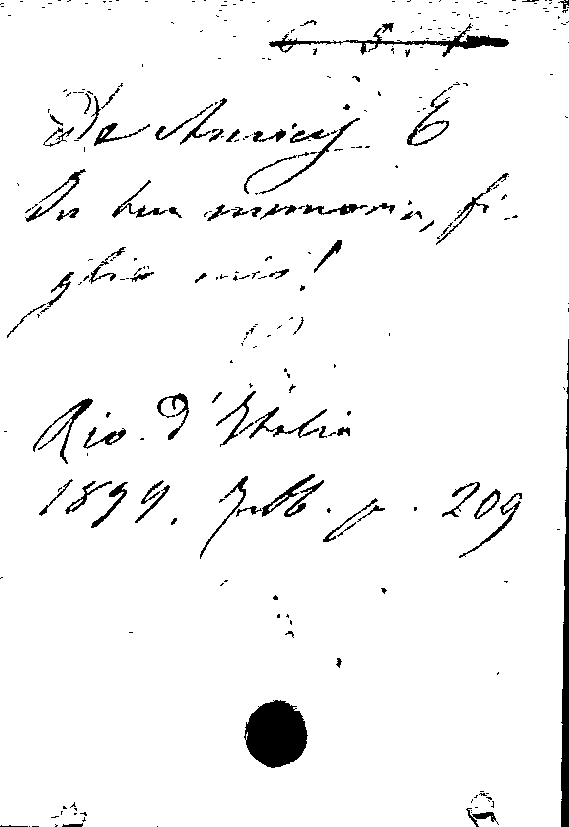 6. 5. 1
De Amicis E
In tua memoria, fi-
glio mio!
Riv. d'Italia
1899. Febb. p. 209